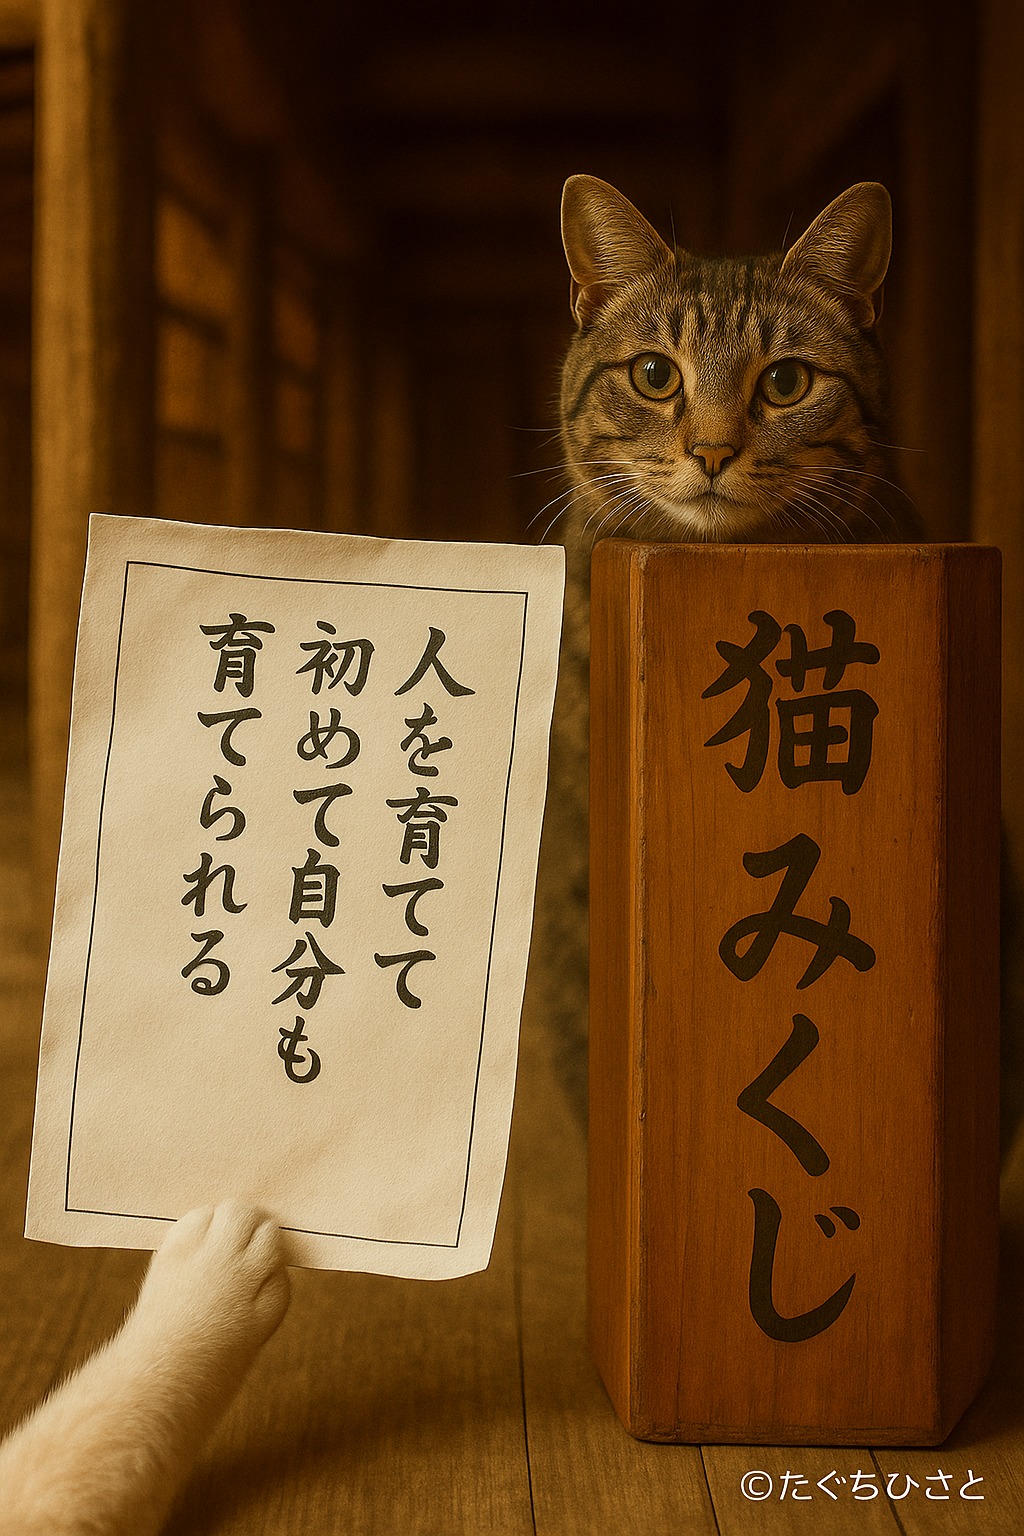 人を育てて
初めて自分も
育てられる
猫みくじ
©たぐちひさと